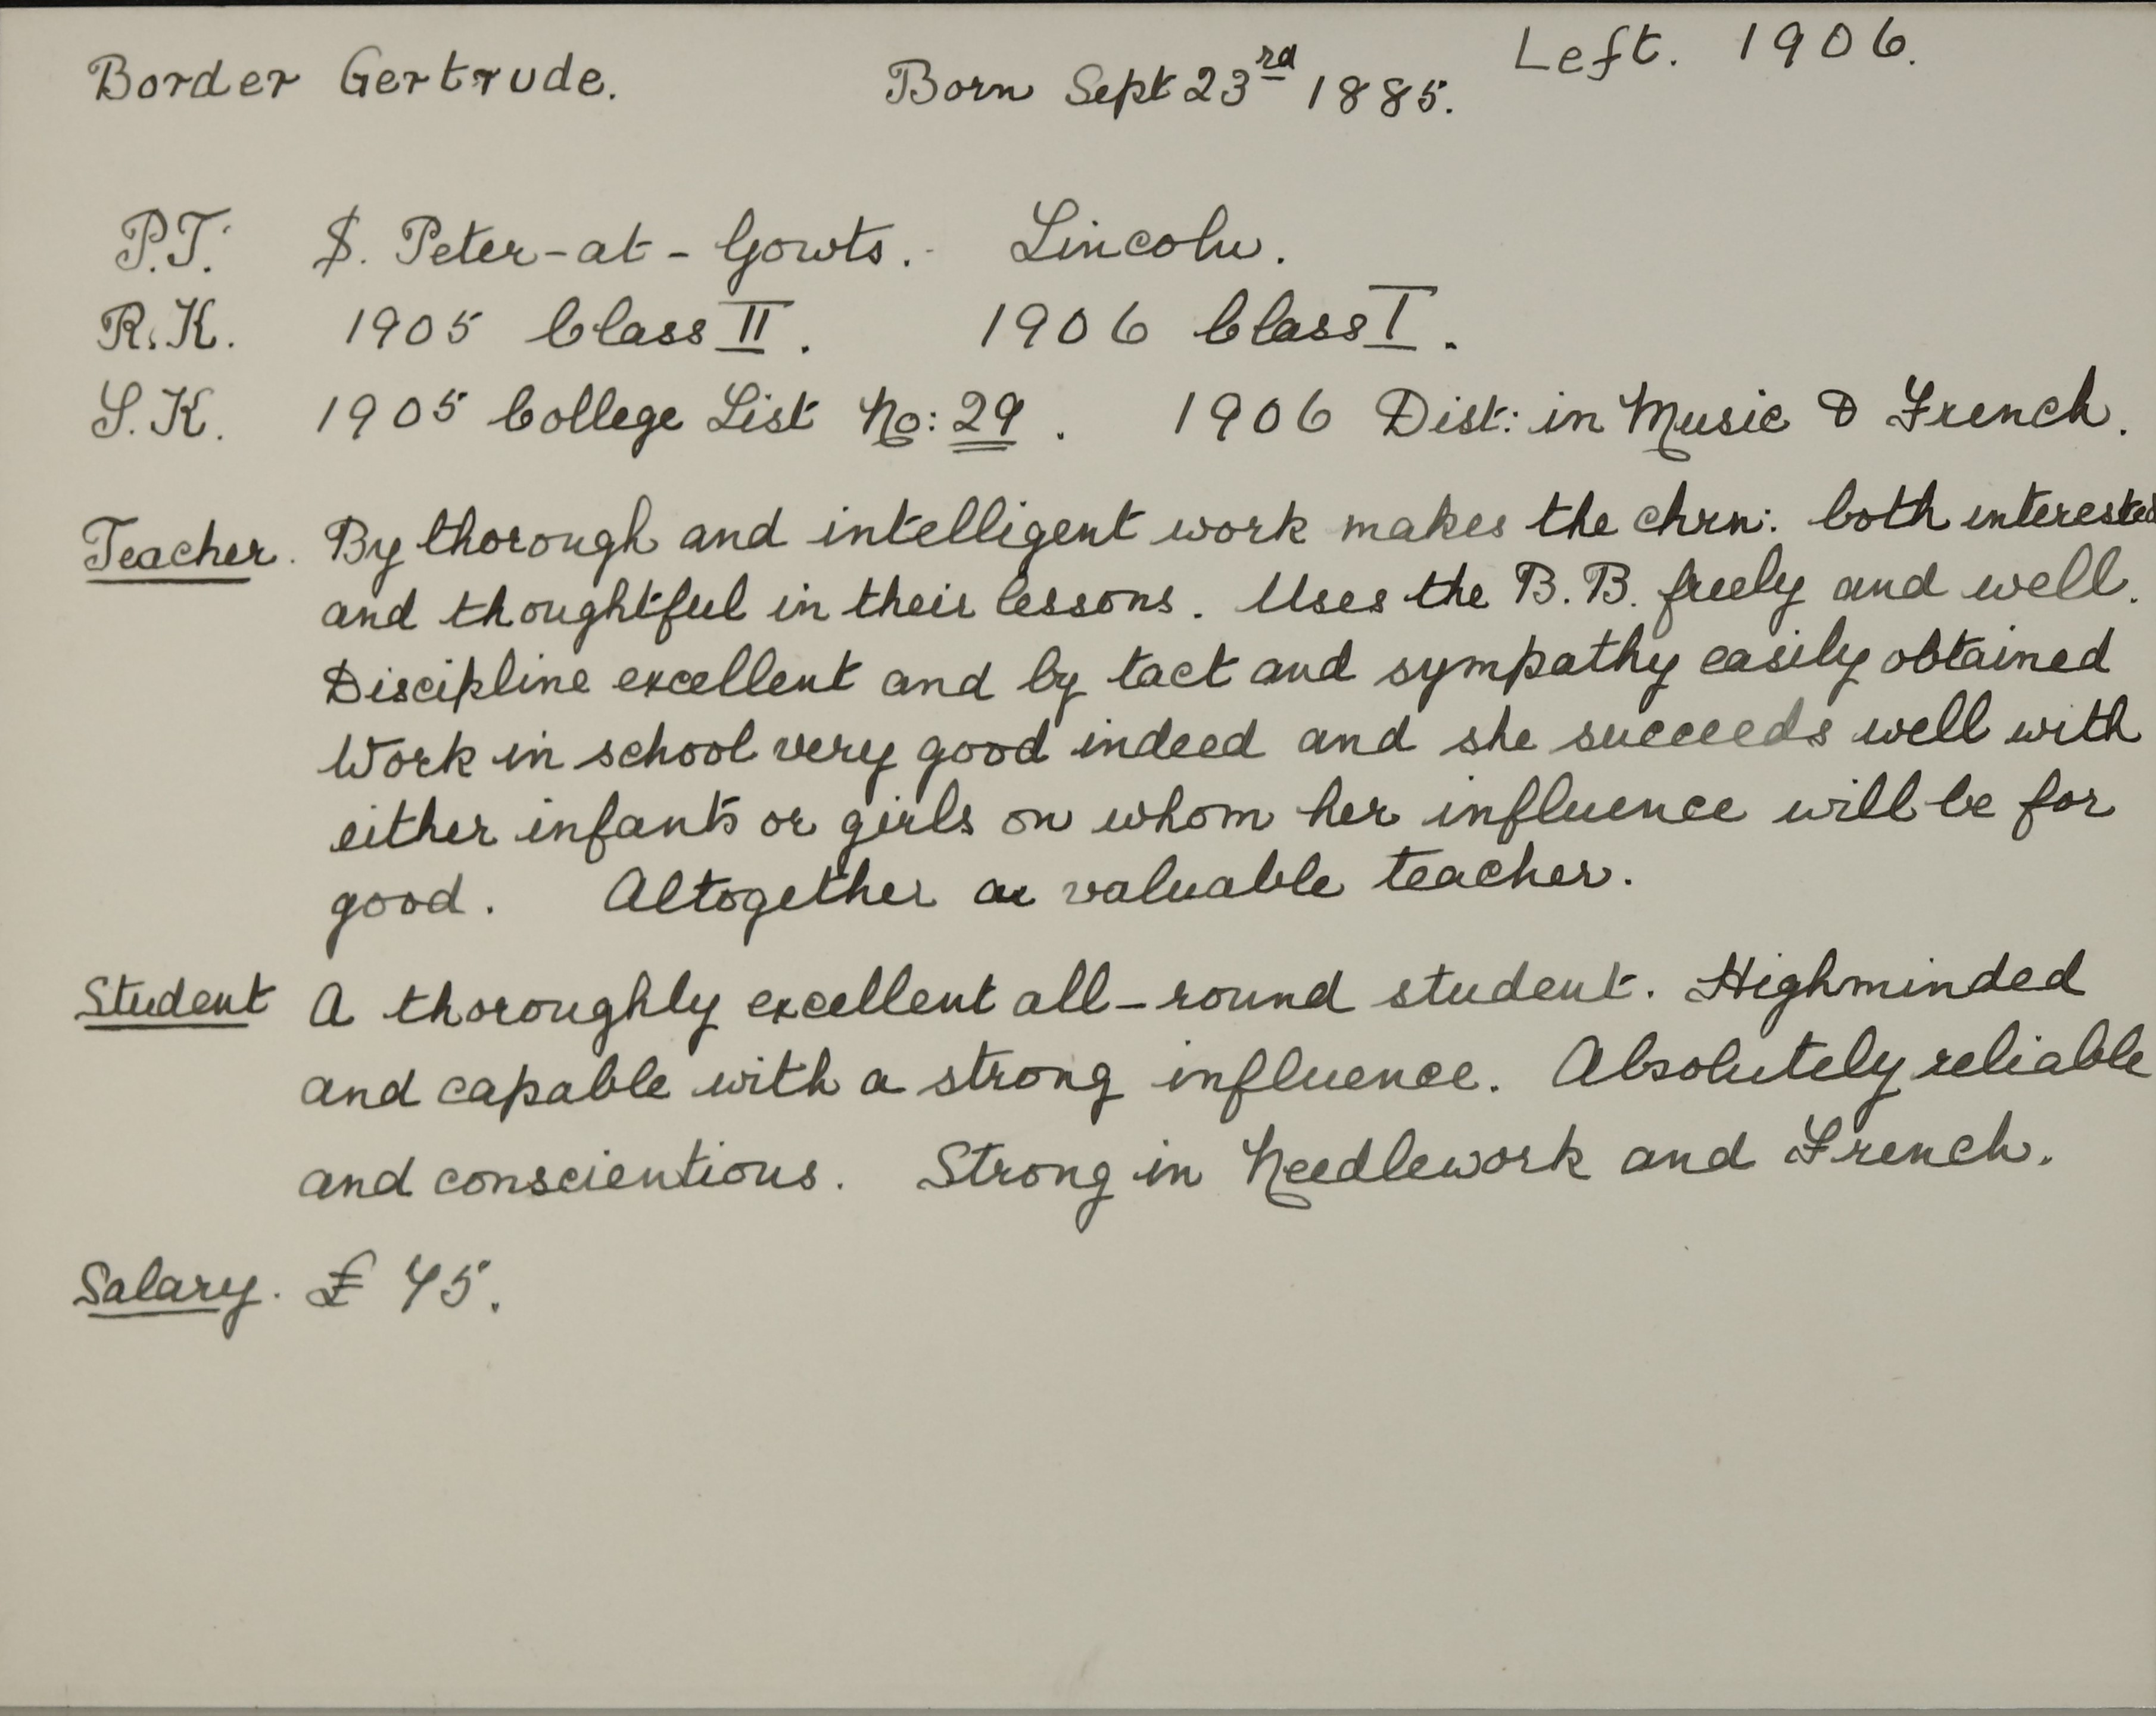 Border Gertrude. Born Sept 23rd 1885. Left. 1906.
P.T. S. Peter-at-Gowts. Lincoln.
R.K. 1905 Class II. 1906 Class I.
S.K. 1905 College List No: 29. 1906 Dist: in Music & French.
Teacher. By thorough and intelligent work makes the chrn: both interested
and thoughtful in their lessons. Uses the B.B. freely and well.
Discipline excellent and by tact and sympathy easily obtained
Work in school very good indeed and she succeeds well with
either infants or girls on whom her influence will be for
good. Altogether a valuable teacher.
Student A thoroughly excellent all-round student. Highminded
and capable with a strong influence. Absolutely reliable
and conscientious. Strong in Needlework and French.
Salary. £ 45.